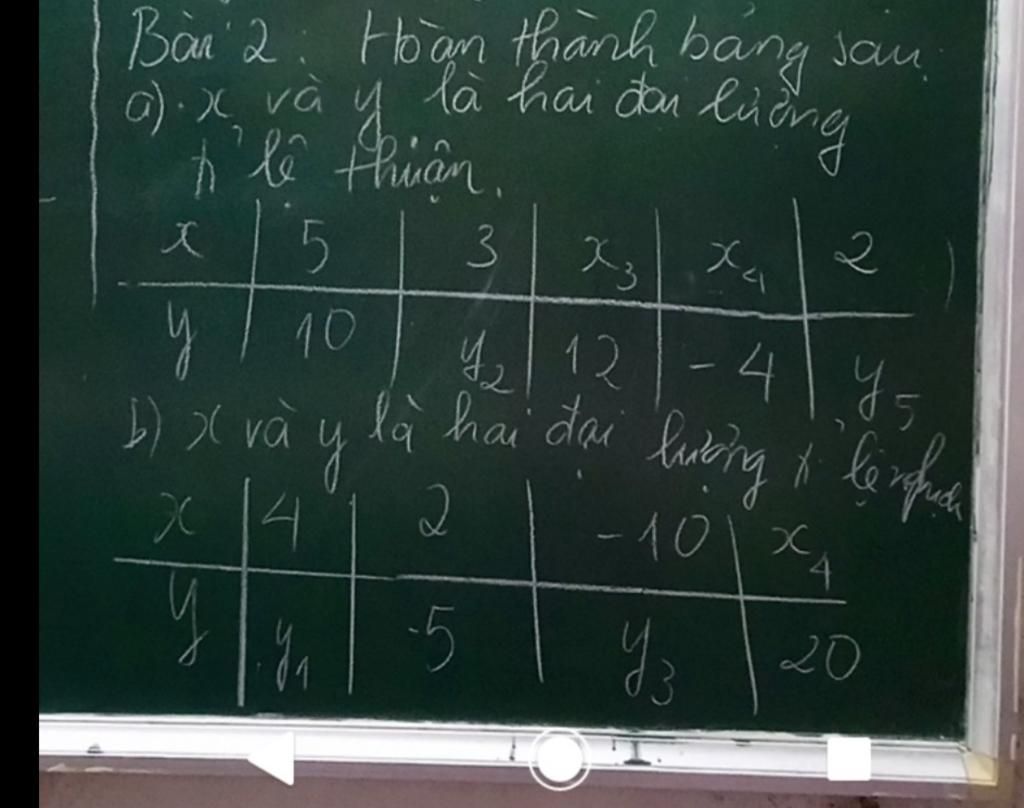 Bài 2: Hoàn thành bảng sau:
a). x và y là hai đại lượng
tỉ lệ thuận.
x | 5 | 3 | x₃ | x₄ | 2
y | 10 | y₂ | 12 | -4 | y₅
b) x và y là hai đại lượng tỉ lệ nghịch
x | 4 | 2 | -10 | x₄
y | y₁ | -5 | y₃ | 20